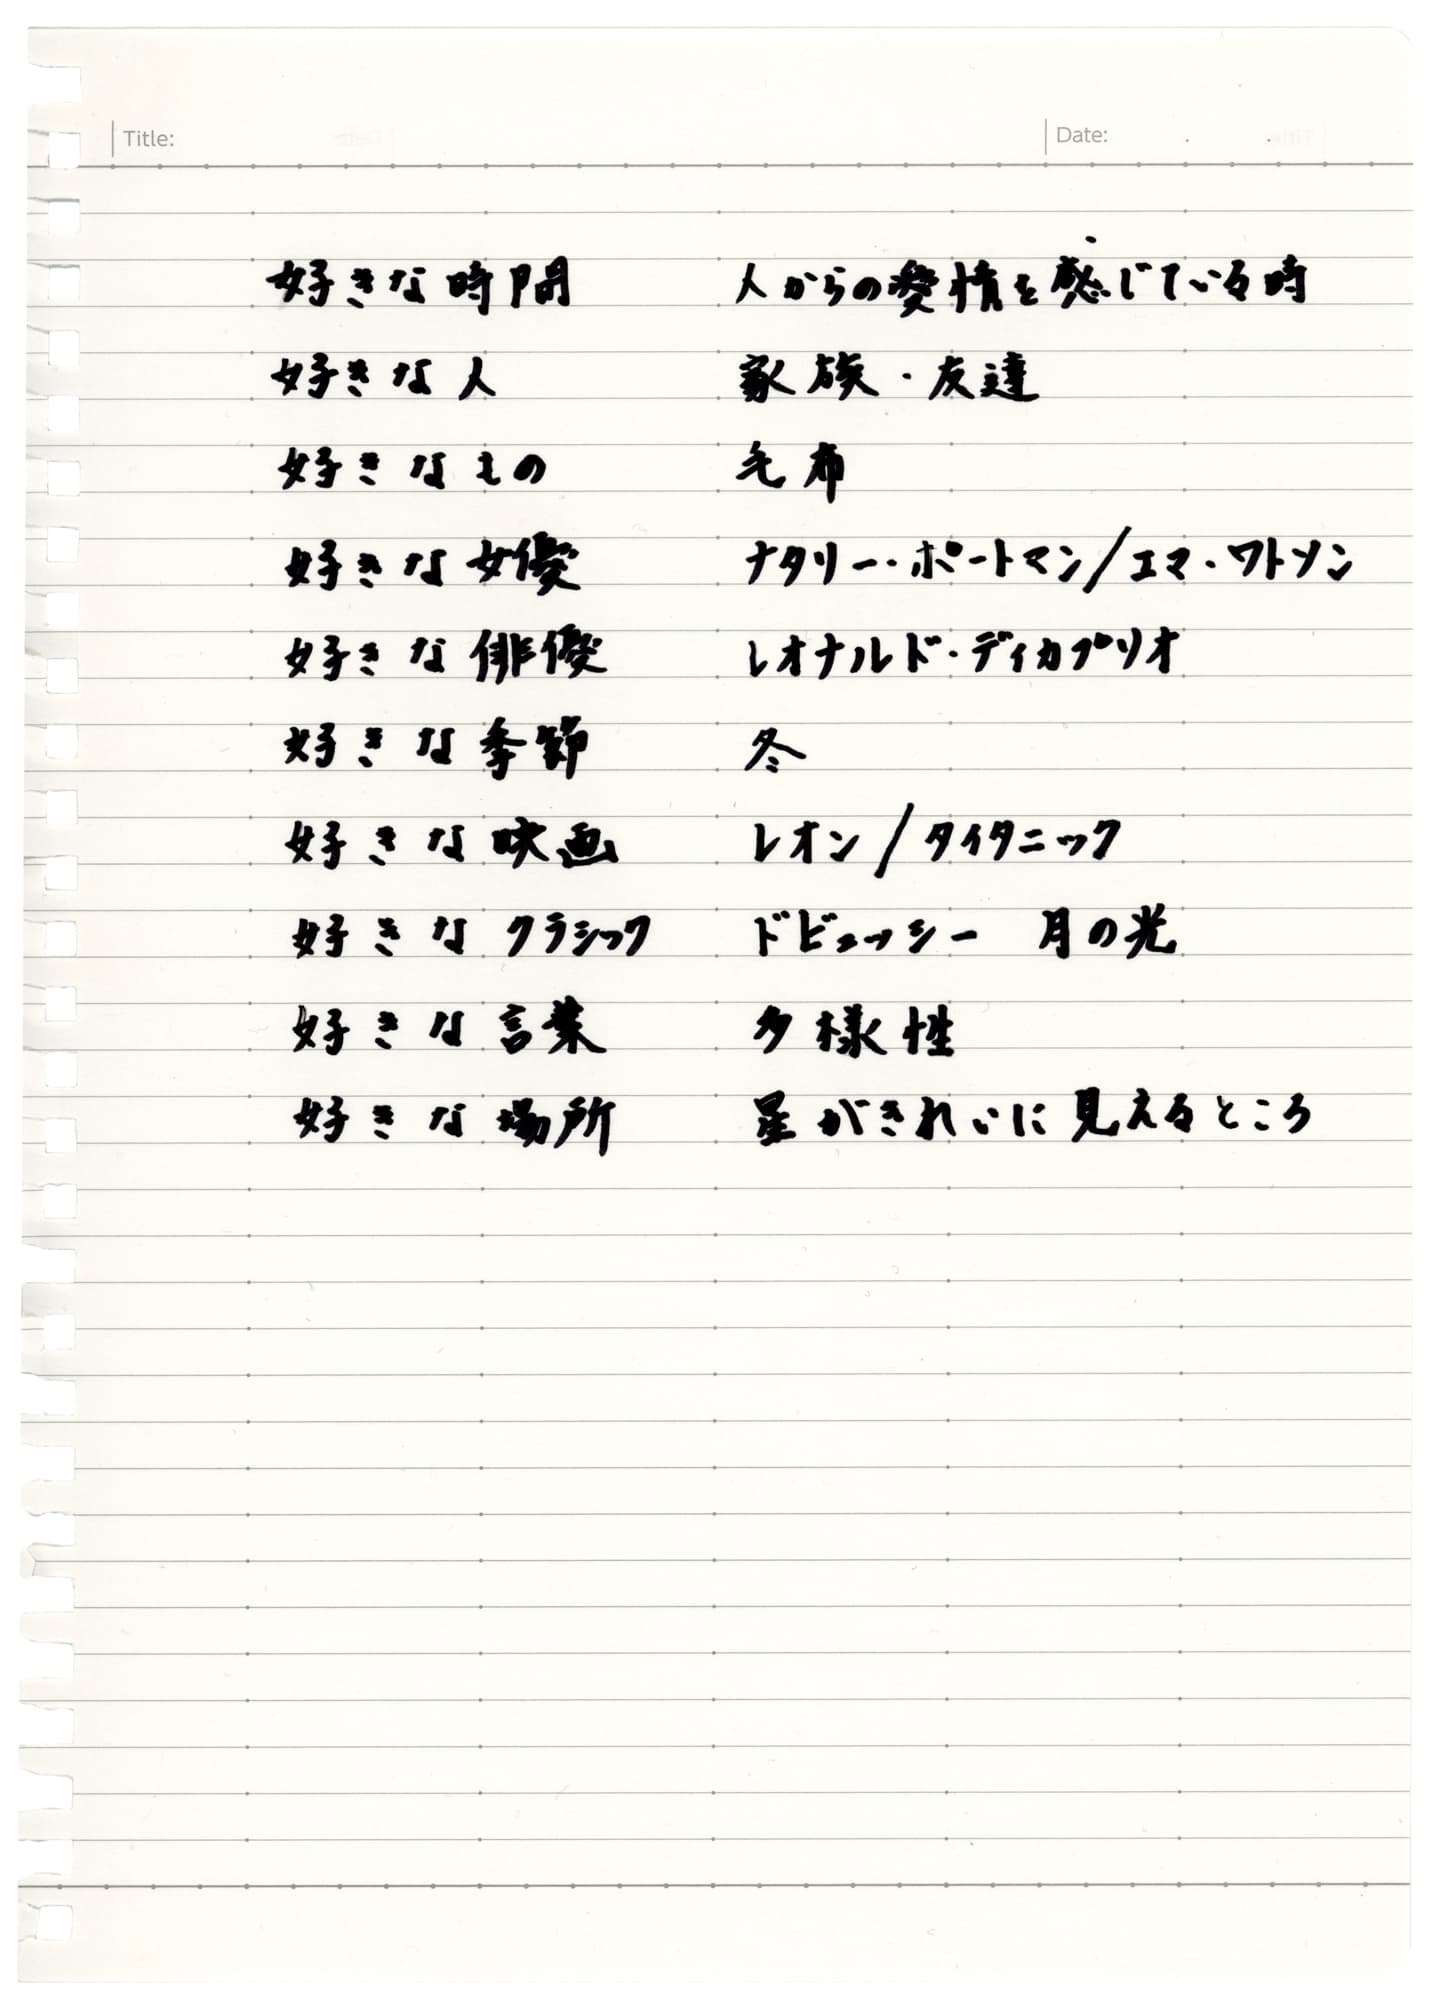 Title: Date: . .
好きな時間 人からの愛情を感じている時
好きな人 家族・友達
好きなもの 毛布
好きな女優 ナタリー・ポートマン/エマ・ワトソン
好きな俳優 レオナルド・ディカプリオ
好きな季節 冬
好きな映画 レオン/タイタニック
好きなクラシック ドビュッシー 月の光
好きな言葉 多様性
好きな場所 星がきれいに見えるところ